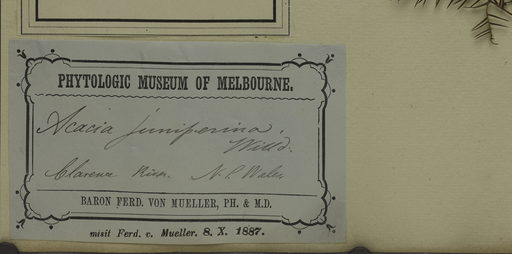 PHYTOLOGIC MUSEUM OF MELBOURNE.
Acacia juniperina.
Willd.
Clarence River. N. S. Wales
BARON FERD. VON MUELLER, PH. & M.D.
misit Ferd. v. Mueller. 8. X. 1887.